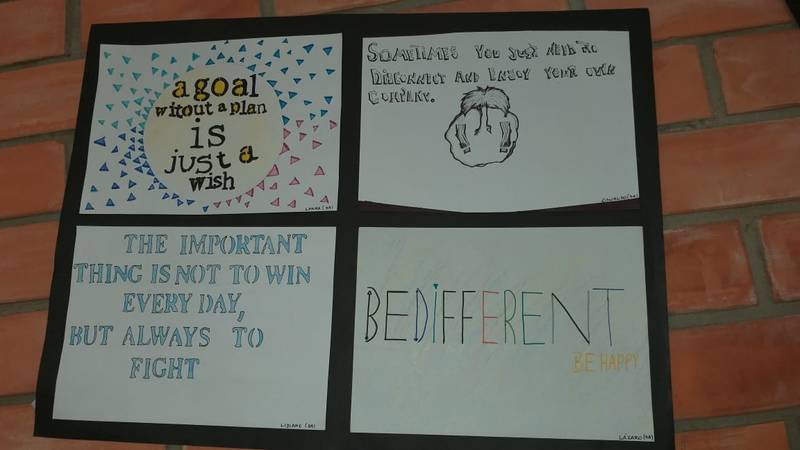 a goal
witout a plan
is
just a
wish
SOMETIMES YOU JUST NEED TO
DISCONNECT AND ENJOY YOUR OWN
COMPANY.
THE IMPORTANT
THING IS NOT TO WIN
EVERY DAY,
BUT ALWAYS TO
FIGHT
BEDiFFERENT
BE HAPPY
LÁZARO (9A)